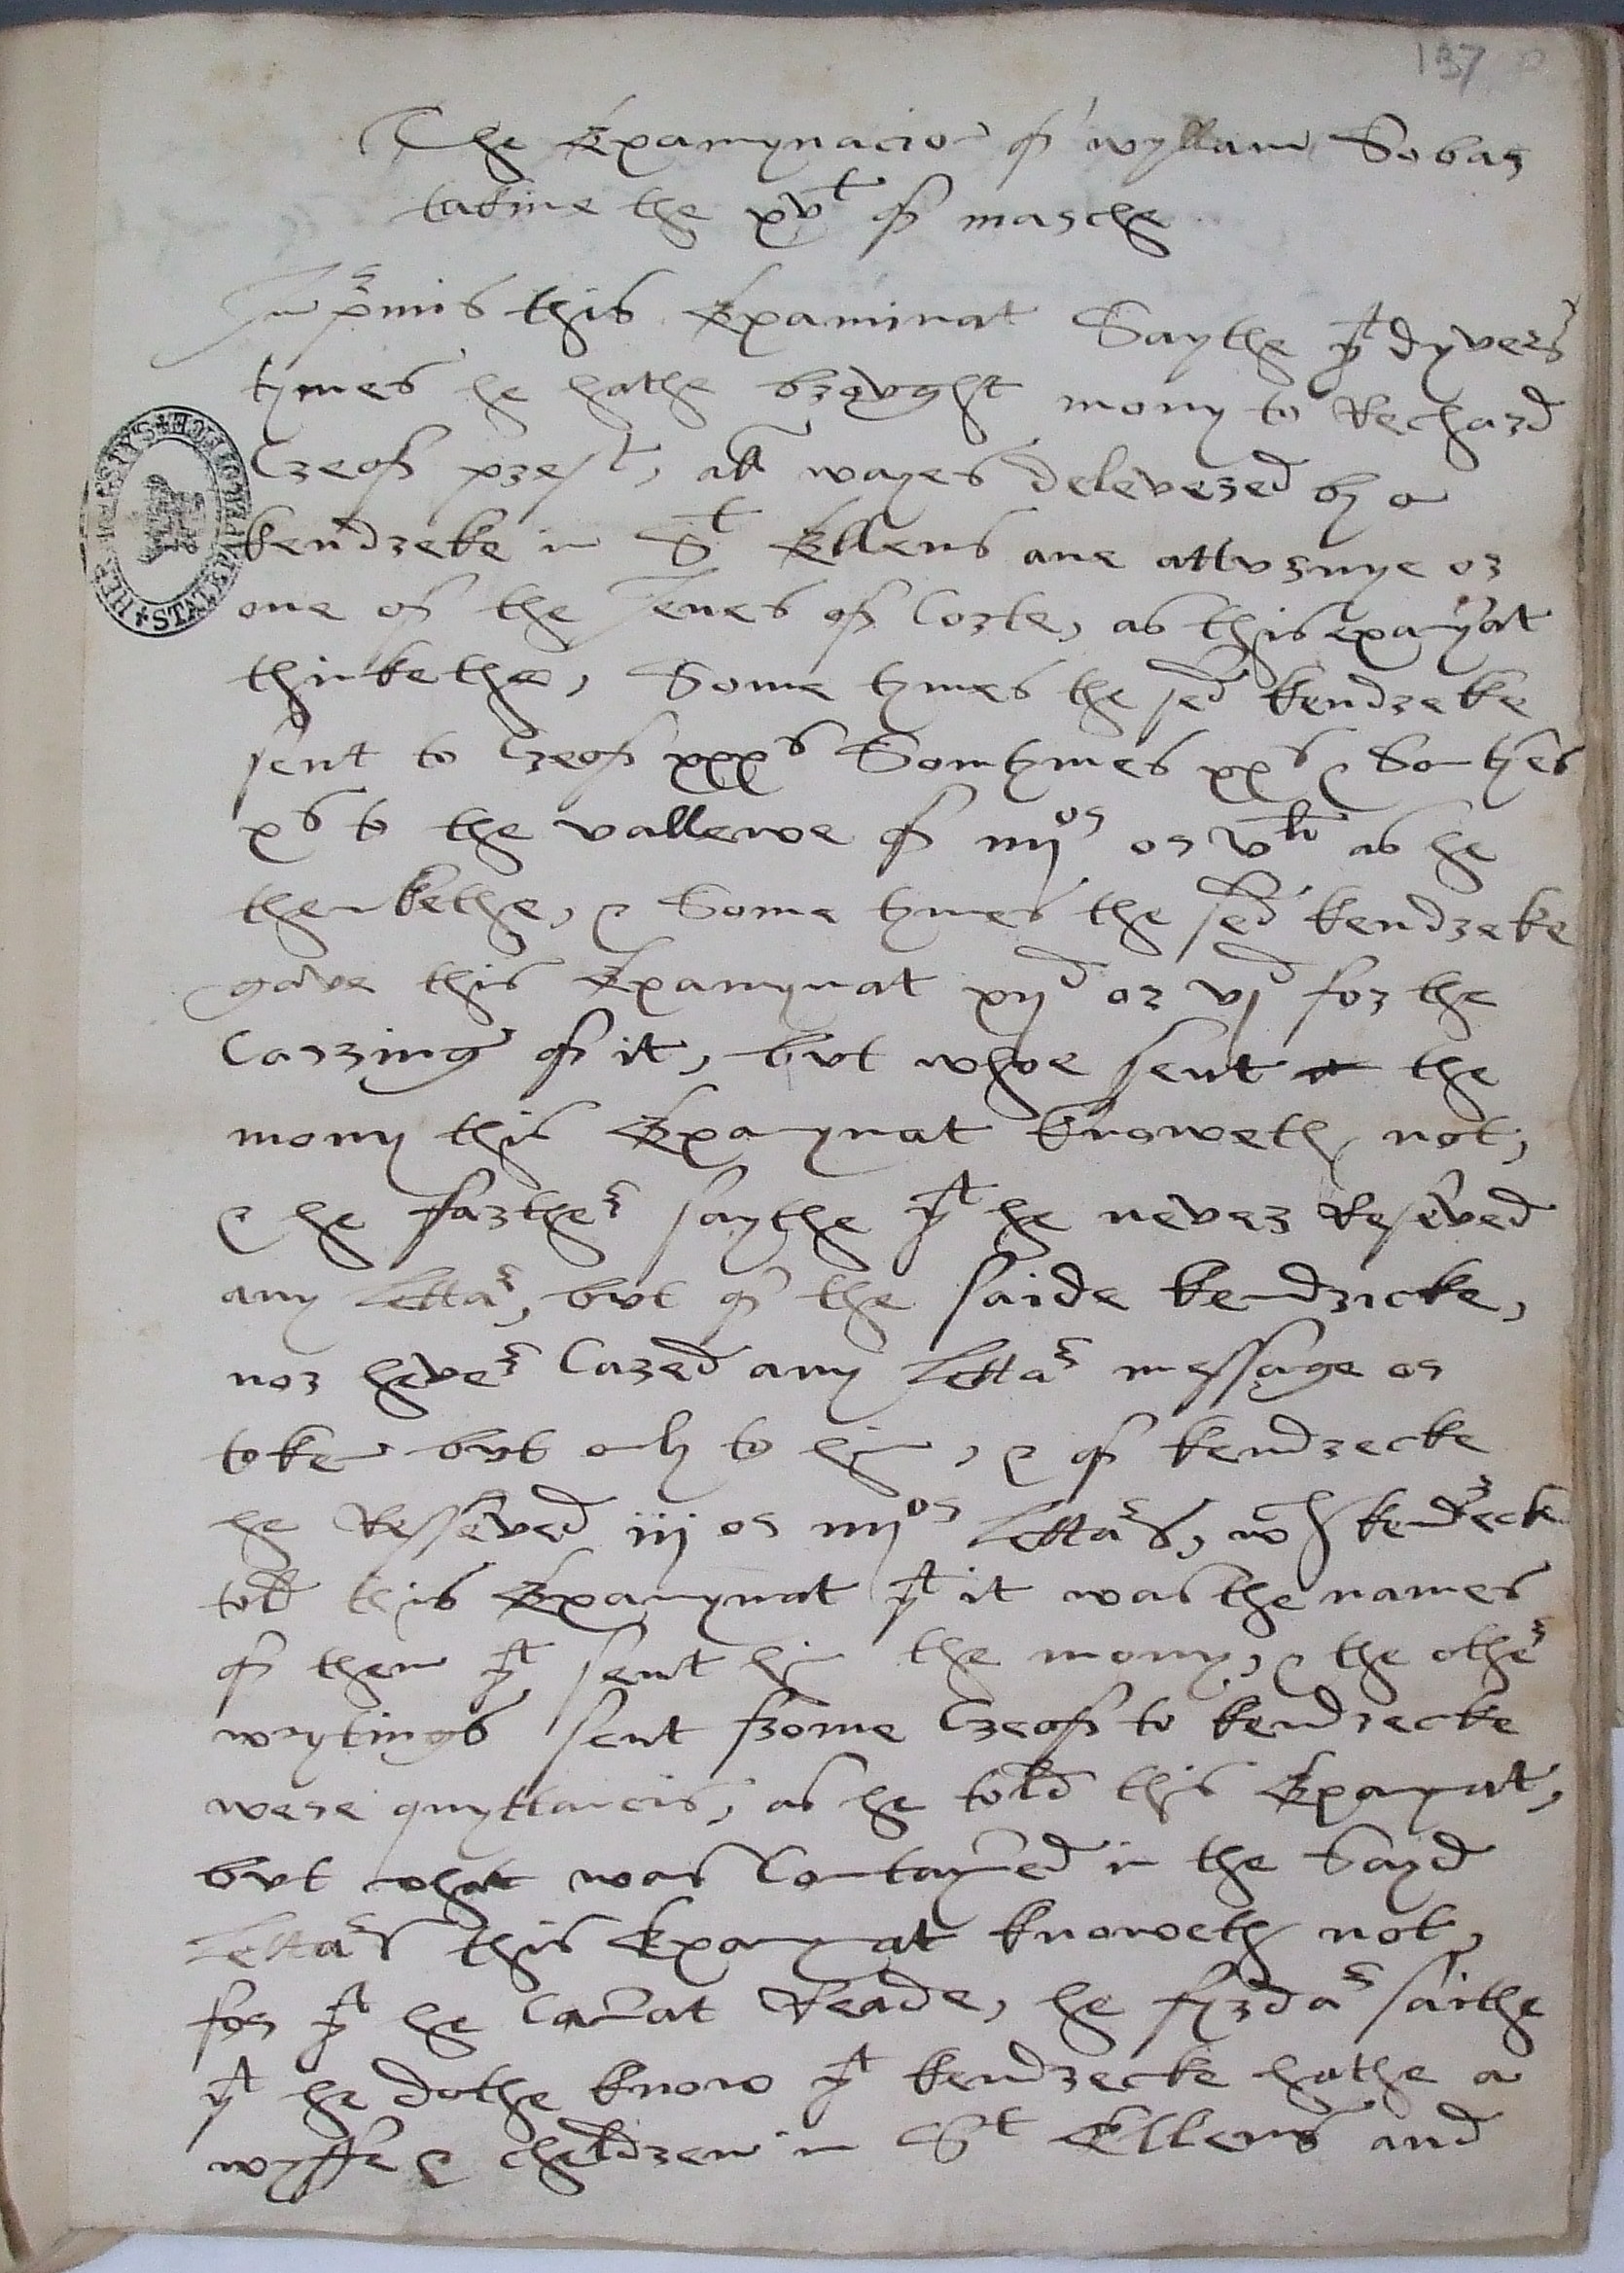 137
The Examynacion of wyllam Sobar
takine the xvt of marche
In p'mis this Examinat Saythe yt dyvers
tymes he hathe browght mony to Rechard
Creof prest, all wayes delevered by on
kendreke in St Ellens ane atturnye or
one of the Jenes of Corte, as this examynat
thinkethe, Some tymes the sed kendreke
sent to Creof xxxs Somtymes xxs & Somtymes
xs to the vallewe of iiijor or vli as he
thenkethe, & Some tymes the sed kendreke
gave this Examynat xijd or vjd for the
Carring of it, but whoe sent it the
mony this Examynat knoweth not,
& he farther saythe yt he never Reseved
any letta', but of the saide kendricke,
nor hever Cared any letta' message or
token but only to him, & of kendrecke
he Resseved iij or iiijor letta's, wch kendreck
told this Examynat yt it was the names
of them yt sent him the mony, & the other
wrytings sent frome Creof to kendrecke
were quyttancis, as he told this Examynat,
but what was Contayned in the Sayd
letta's this Examynat knoweth not,
for yt he Cannat Reade, he fyrda' saithe
yt he dothe know yt kendrecke hathe a
wyffe & cheldren in St Ellens and
HER MAJESTYS STATE PAPER OFFICE